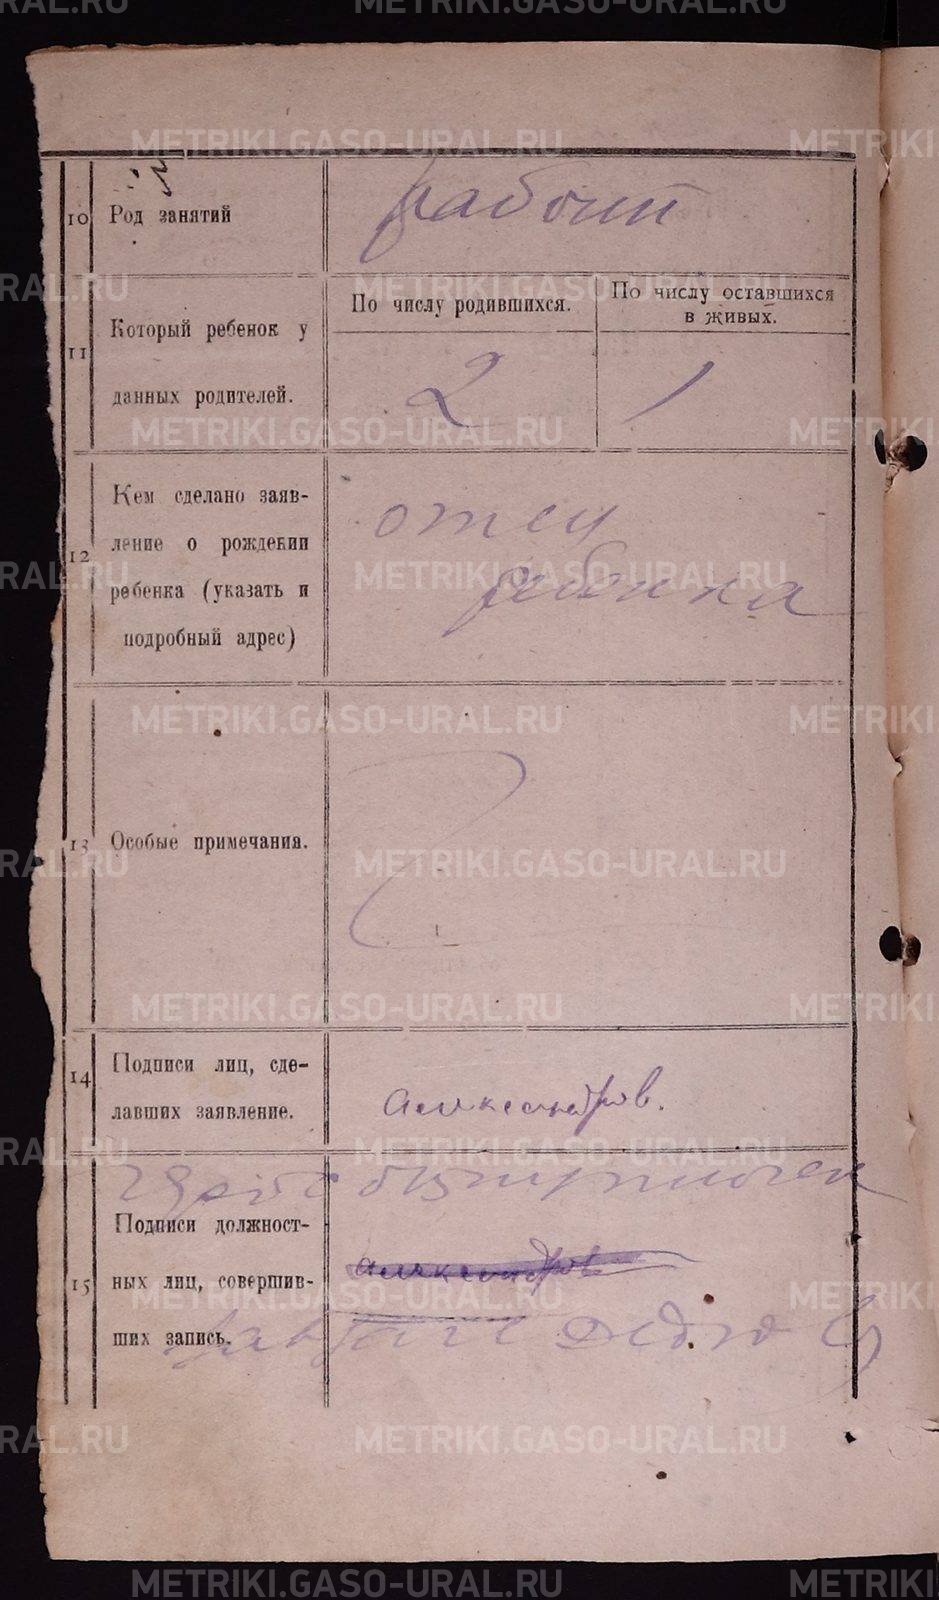 METRIKI.GASO-URAL.RU
10 Род занятий
рабочий
11 Который ребенок у
данных родителей.
По числу родившихся.
По числу оставшихся
в живых.
2
1
12 Кем сделано заяв-
ление о рождении
ребенка (указать и
подробный адрес)
отец
ребенка
13 Особые примечания.
14 Подписи лиц, сде-
лавших заявление.
Александров.
15 Подписи должност-
ных лиц, совершив-
ших запись.
Александров